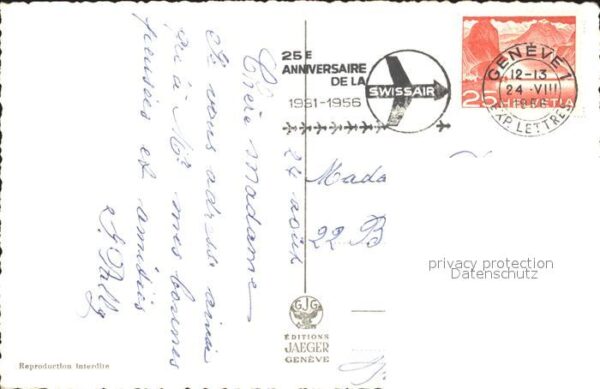 24 août
Chère Madame
Je vous adresse ainsi
qu'à Mr mes bonnes
pensées et amitiés
25E
ANNIVERSAIRE
DE LA
SWISSAIR
1931-1956
GENÈVE 1
12-13
24·VIII
1956
EXP. LETTRES
25 HELVETIA
Mada
22 B
privacy protection
Datenschutz
GJG
ÉDITIONS
JAEGER
GENÈVE
Reproduction interdite